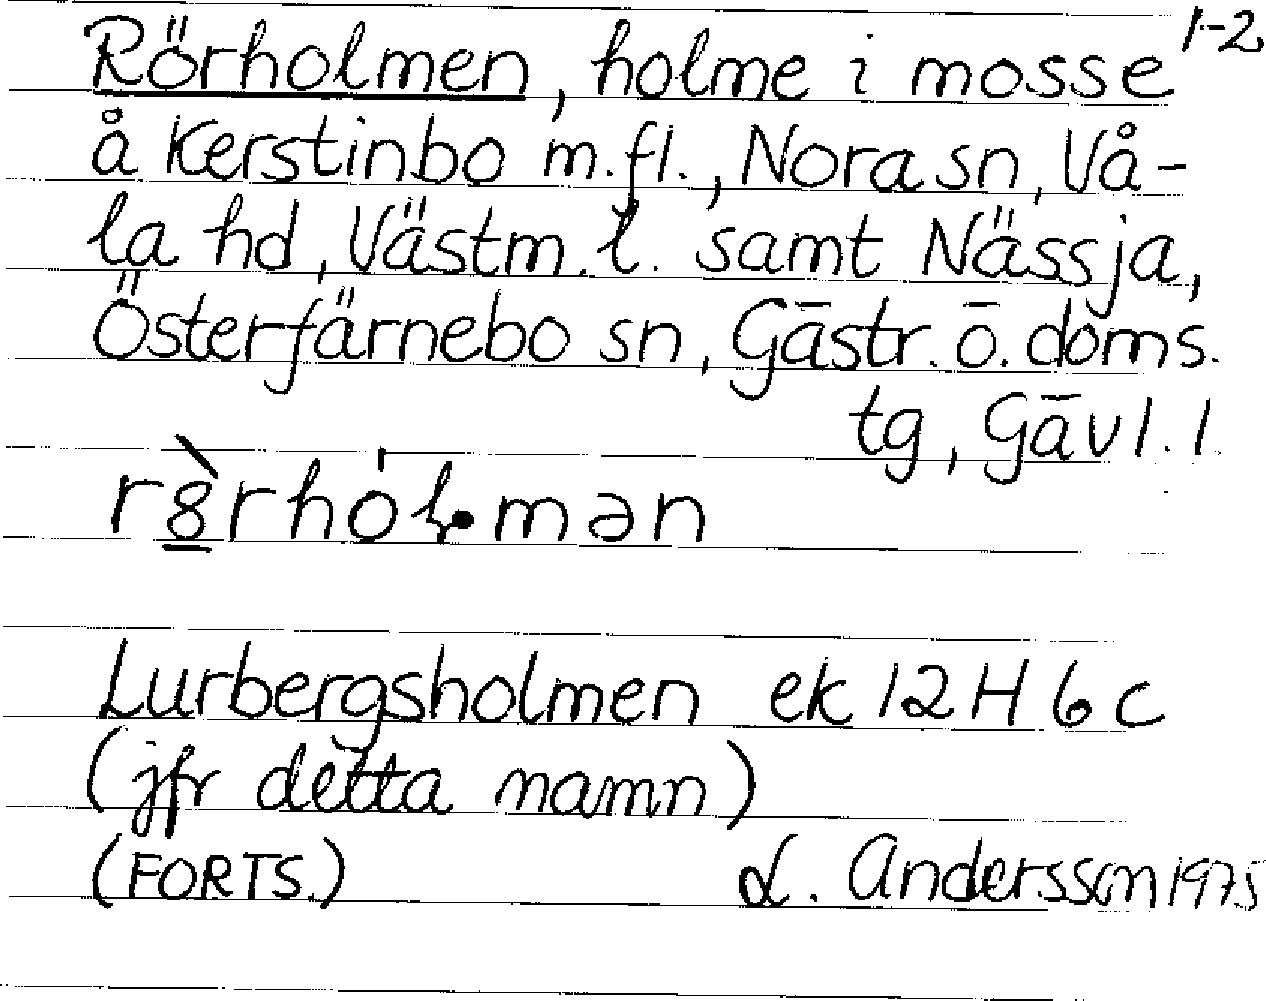 Rörholmen, holme i mosse 1-2
å Kerstinbo m.fl., Nora sn, Vå-
la hd, Västm. l. samt Nässja,
Österfärnebo sn, Gästr. ö. doms.
tg, Gävl. l.
Lurbergsholmen ek 12H 6c
(jfr detta namn)
(FORTS.) L. Andersson 1975